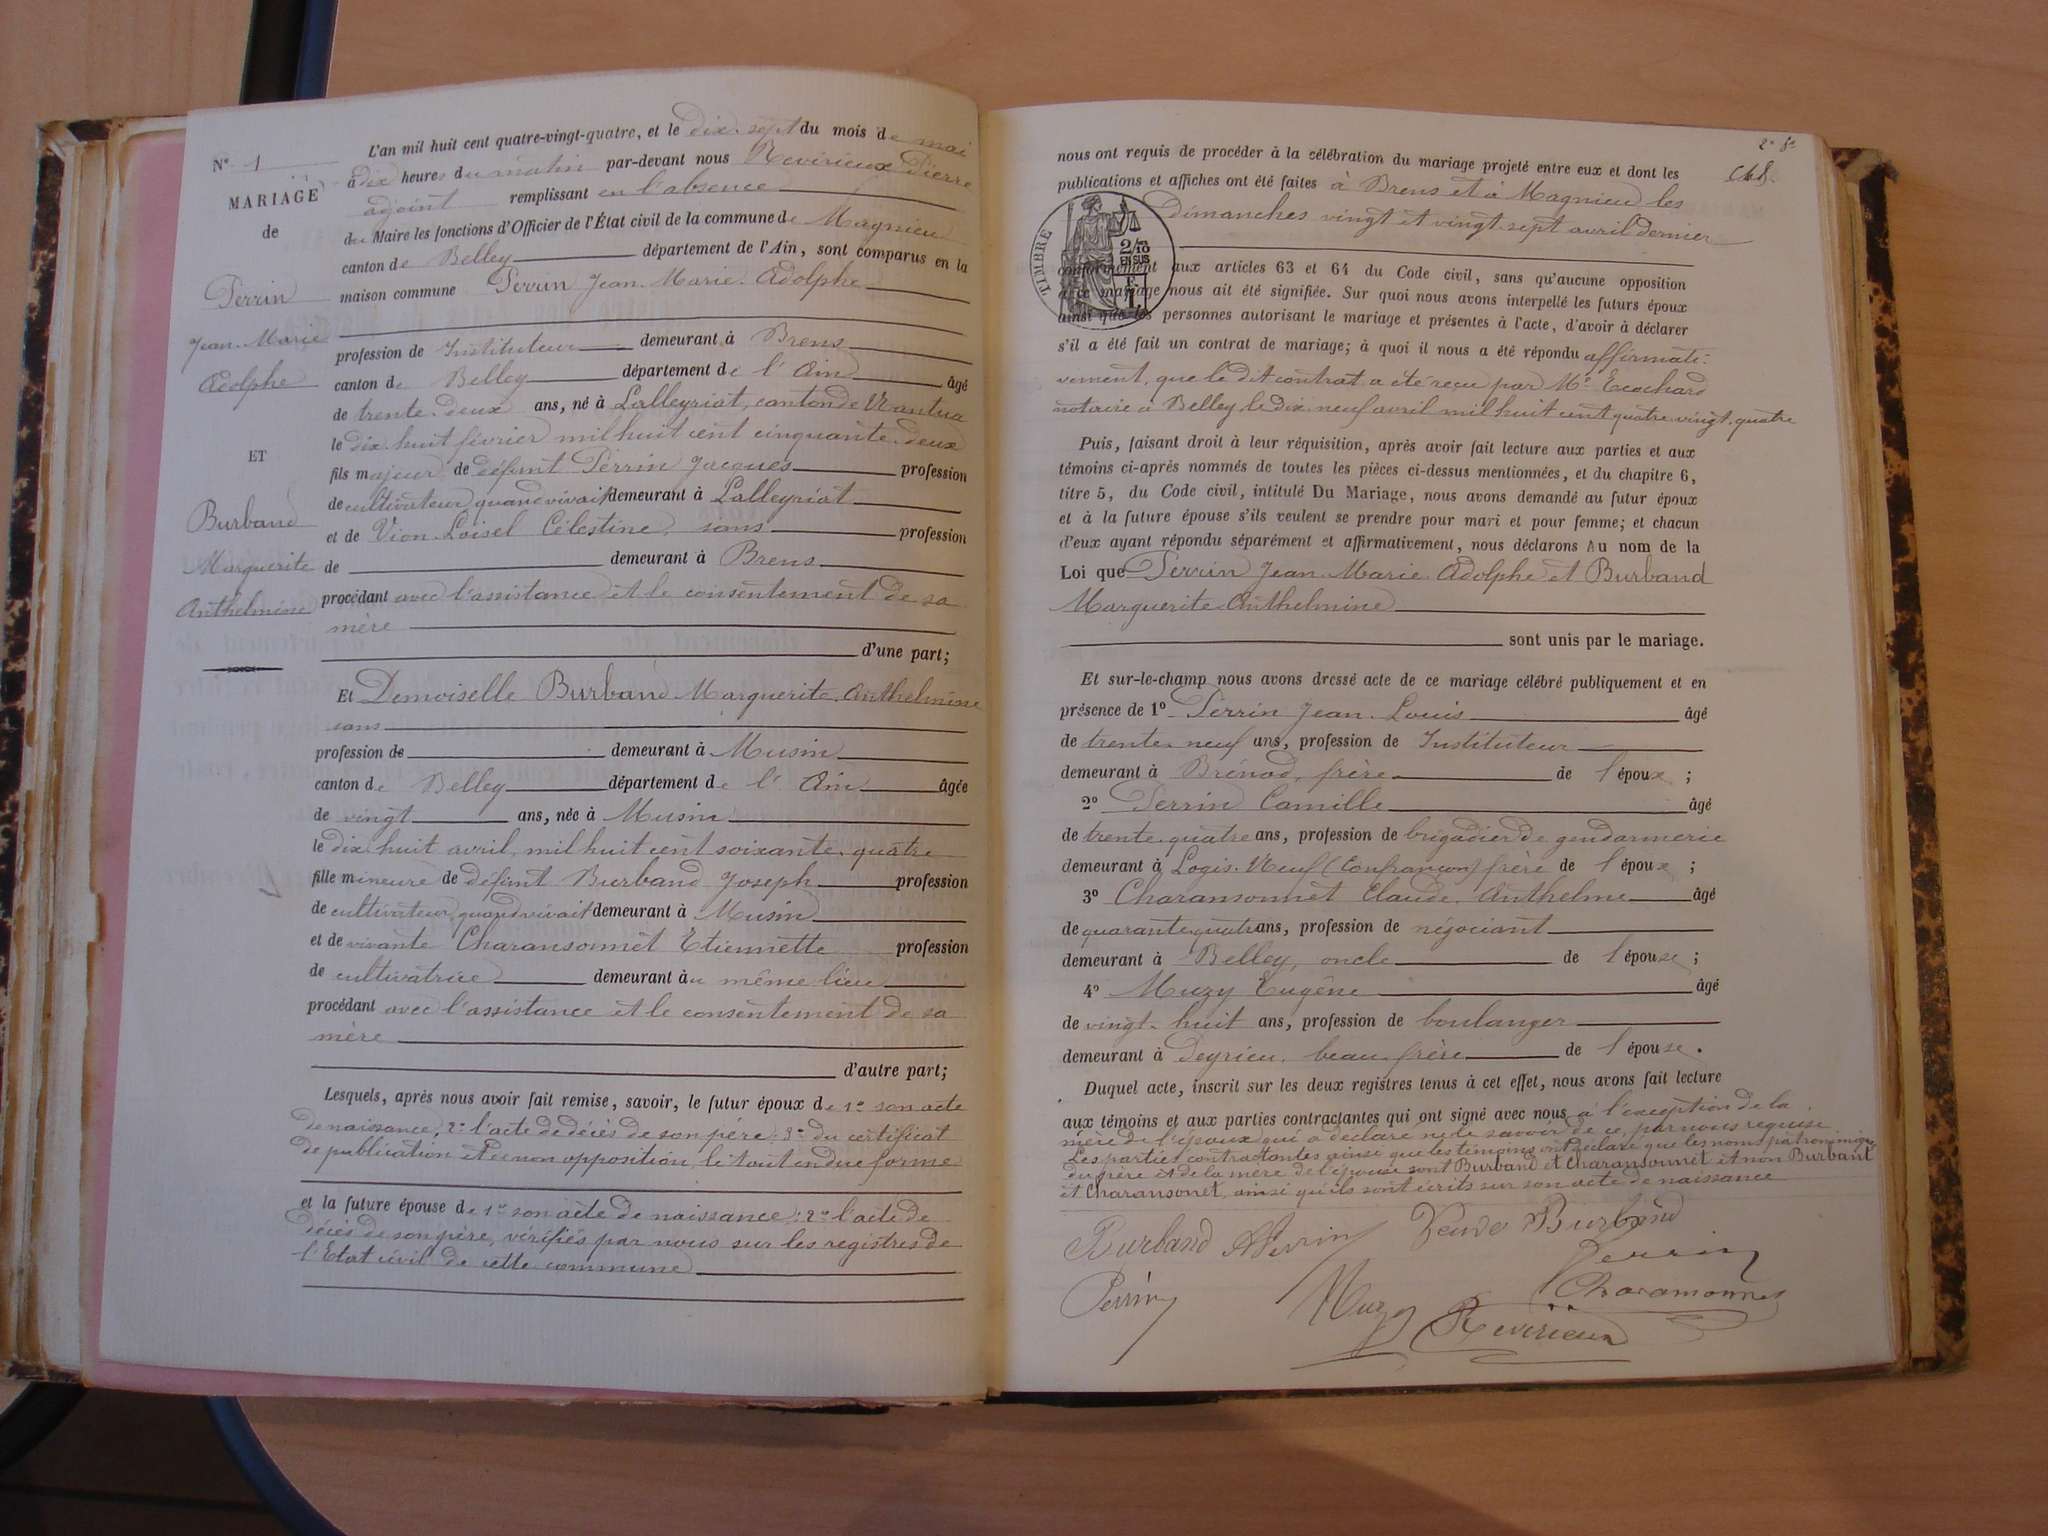 N° 1
MARIAGE
de
Perrin
Jean-Marie
Adolphe
ET
Burband
Marguerite
Anthelmine
L'an mil huit cent quatre-vingt-quatre, et le dix-sept du mois de mai
à dix heures du matin par-devant nous Revirieux Pierre
adjoint remplissant en l'absence
du Maire les fonctions d'Officier de l'État civil de la commune de Magnieu
canton de Belley département de l'Ain, sont comparus en la
maison commune Perrin Jean-Marie-Adolphe
profession de Instituteur demeurant à Brens
canton de Belley département de l'Ain âgé
de trente-deux ans, né à Lalleyriat, canton de Nantua
le dix-huit février mil huit cent cinquante-deux
fils majeur de défunt Perrin Jacques profession
de cultivateur quand vivait demeurant à Lalleyriat
et de Vion-Loisel Célestine, sans profession
de demeurant à Brens
procédant avec l'assistance et le consentement de sa
mère
d'une part;
Et Demoiselle Burband Marguerite-Anthelmine
sans
profession de demeurant à Musin
canton de Belley département de l'Ain âgée
de vingt ans, née à Musin
le dix-huit avril, mil huit cent soixante-quatre
fille mineure de défunt Burband Joseph profession
de cultivateur quand vivait demeurant à Musin
et de vivante Charansonnet Etiennette profession
de cultivatrice demeurant au même lieu
procédant avec l'assistance et le consentement de sa
mère
d'autre part;
Lesquels, après nous avoir fait remise, savoir, le futur époux de 1° son acte
de naissance; 2° l'acte de décès de son père; 3° du certificat
de publication et de non opposition, le tout en due forme
et la future épouse de 1° son acte de naissance; 2° l'acte de
décès de son père, vérifiés par nous sur les registres de
l'Etat civil de cette commune
nous ont requis de procéder à la célébration du mariage projeté entre eux et dont les
publications et affiches ont été faites à Brens et à Magnieu les
dimanches vingt et vingt-sept avril dernier
TIMBRE
2/10
EN SUS
conformément aux articles 63 et 64 du Code civil, sans qu'aucune opposition
à ce mariage nous ait été signifiée. Sur quoi nous avons interpellé les futurs époux
ainsi que les personnes autorisant le mariage et présentes à l'acte, d'avoir à déclarer
s'il a été fait un contrat de mariage; à quoi il nous a été répondu affirmati-
vement, que le dit contrat a été reçu par Me Ecochard
notaire à Belley le dix-neuf avril mil huit cent quatre-vingt-quatre
Puis, faisant droit à leur réquisition, après avoir fait lecture aux parties et aux
témoins ci-après nommés de toutes les pièces ci-dessus mentionnées, et du chapitre 6,
titre 5, du Code civil, intitulé Du Mariage, nous avons demandé au futur époux
et à la future épouse s'ils veulent se prendre pour mari et pour femme; et chacun
d'eux ayant répondu séparément et affirmativement, nous déclarons Au nom de la
Loi que Perrin Jean-Marie-Adolphe et Burband
Marguerite-Anthelmine
sont unis par le mariage.
Et sur-le-champ nous avons dressé acte de ce mariage célébré publiquement et en
présence de 1° Perrin Jean-Louis âgé
de trente-neuf ans, profession de Instituteur
demeurant à Brénod, frère de l'époux;
2° Perrin Camille âgé
de trente-quatre ans, profession de brigadier de gendarmerie
demeurant à Logis-Neuf (Confrançon) frère de l'époux;
3° Charansonnet Claude-Anthelme âgé
de quarante-quatre ans, profession de négociant
demeurant à Belley, oncle de l'épouse;
4° Muzy Eugène âgé
de vingt-huit ans, profession de boulanger
demeurant à Peyrieu, beau-frère de l'épouse.
Duquel acte, inscrit sur les deux registres tenus à cet effet, nous avons fait lecture
aux témoins et aux parties contractantes qui ont signé avec nous à l'exception de la
mère de l'époux qui a déclaré ne le savoir de ce, par nous requise.
Les parties contractantes ainsi que les témoins ont déclaré que les noms patronimiques
du père et de la mère de l'épouse sont Burband et Charansonnet et non Burbant
et Charansonet, ainsi qu'ils sont écrits sur son acte de naissance
Burband APerrin Veuve Burband
Perrin
Perrin Muzy Charansonnet
Revirieux